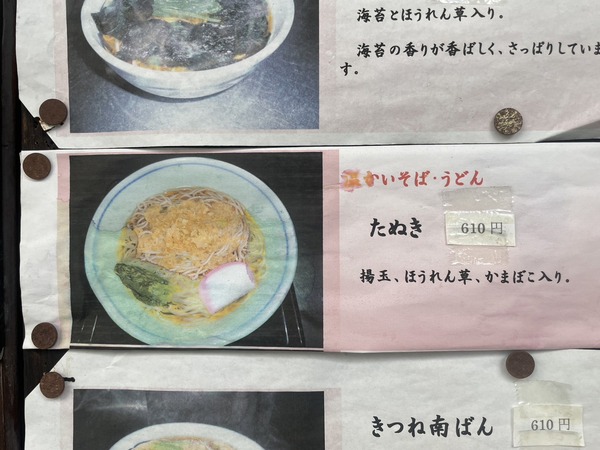 海苔とほうれん草入り。
海苔の香りが香ばしく、さっぱりしていま
す。
かいそば・うどん
たぬき 610円
揚玉、ほうれん草、かまぼこ入り。
きつね南ばん 610円